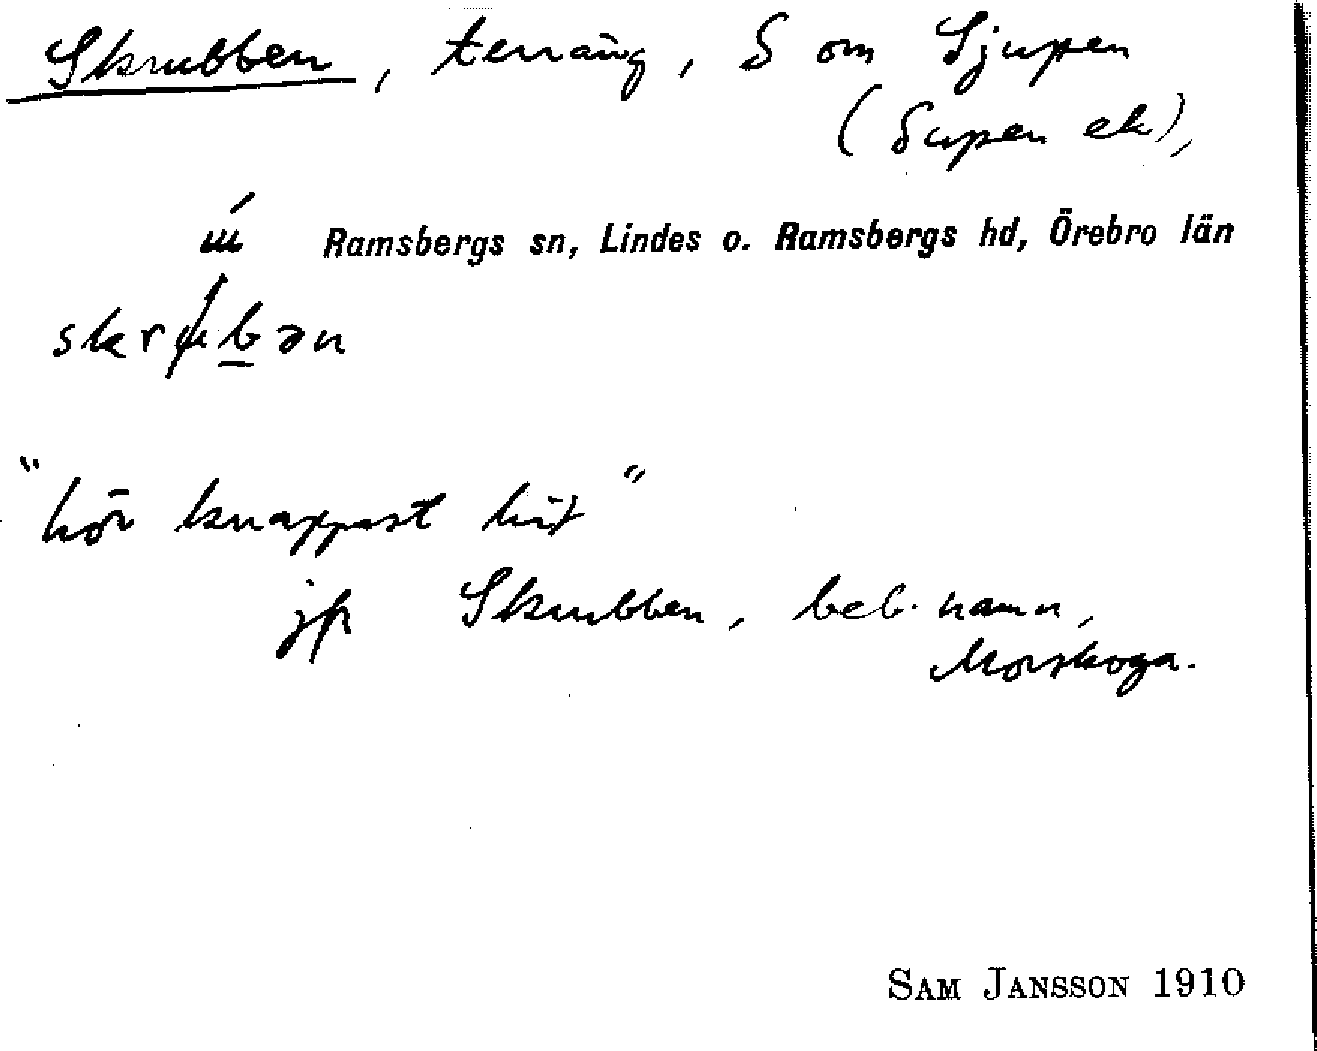 Skrubben, terräng, S om Sjupen
(Supen ek),
Ramsbergs sn, Lindes o. Ramsbergs hd, Örebro län
"hör knappast hit"
jfr Skrubben, beb. namn,
Morskoga.
SAM JANSSON 1910